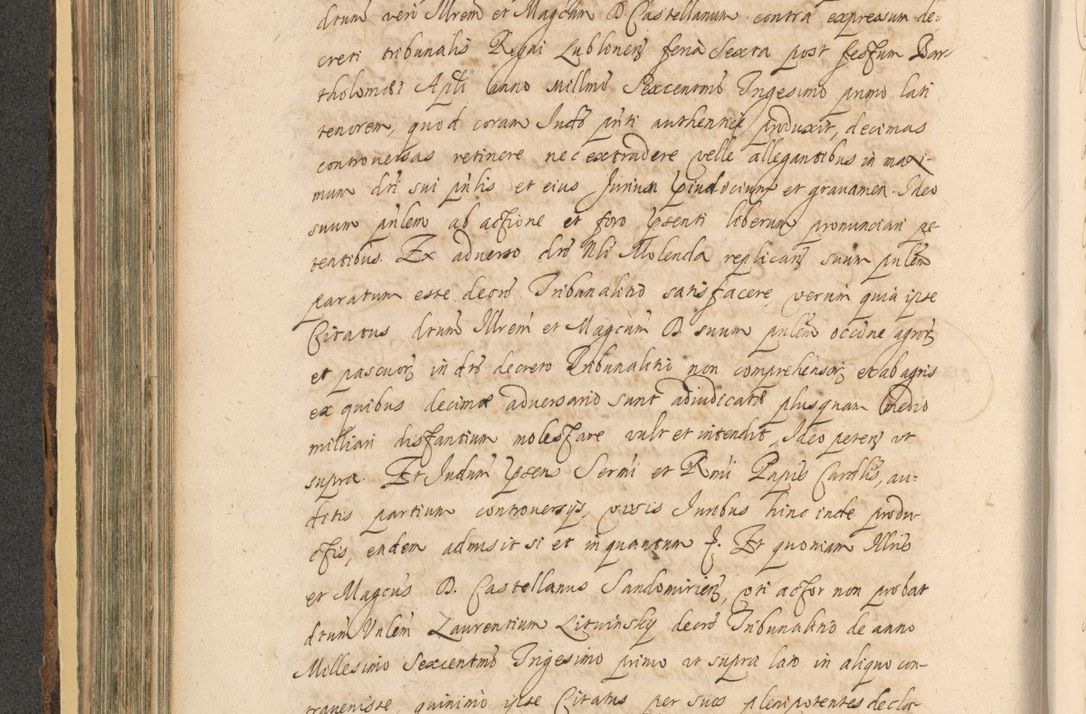 drum vero Illrem et Magcum D Castellanum contra expressum de-
creti tribunalis Regni Lublinen feria sexta post festum Bar-
tholomei Apli anno Millmo Sexcentmo Trigesimo primo lati
tenorem, quod coram Judo pnti authentice produxit, decimas
controversas retinere nec extradere velle allegantibus in maxi-
mum dri sui pnlis et eius Jurium preiudicium et gravamen. Ideo
suum pnlem ab actione et foro psenti liberum pronunciari pe-
tentibus. Ex adverso dri Nli Molenda replican suum pnlem
paratum esse decro Tribunalitio satisfacere, verum quia ipse
Citatus drum Illrem et Magcum D suum pnlem occone agror
et pascuor in dro decreto Tribunalitio non comprehensor, et ab agris
ex quibus decimae adversario sunt adiudicatae plusquam medio
milliari distantium molestare vult et intendit, Ideo peten ut
supra Et Judum psen Sermi et Rmi Pnpis Cardlis, au-
ditis partium controversijs, visis Juribus hinc inde produ-
ctis, eadem admisit si et inquantum J. Et quoniam Illris
et Magcus D. Castellanus Sandomirien, uti actor non probat
drum Nnlem Laurentium Litwinsky decro Tribunalitio de anno
Millesimo Sexcentmo Trigesimo primo ut supra lato in aliquo con-
travenisse, quinimo ipse Citatus per suos plenipotentes decla-